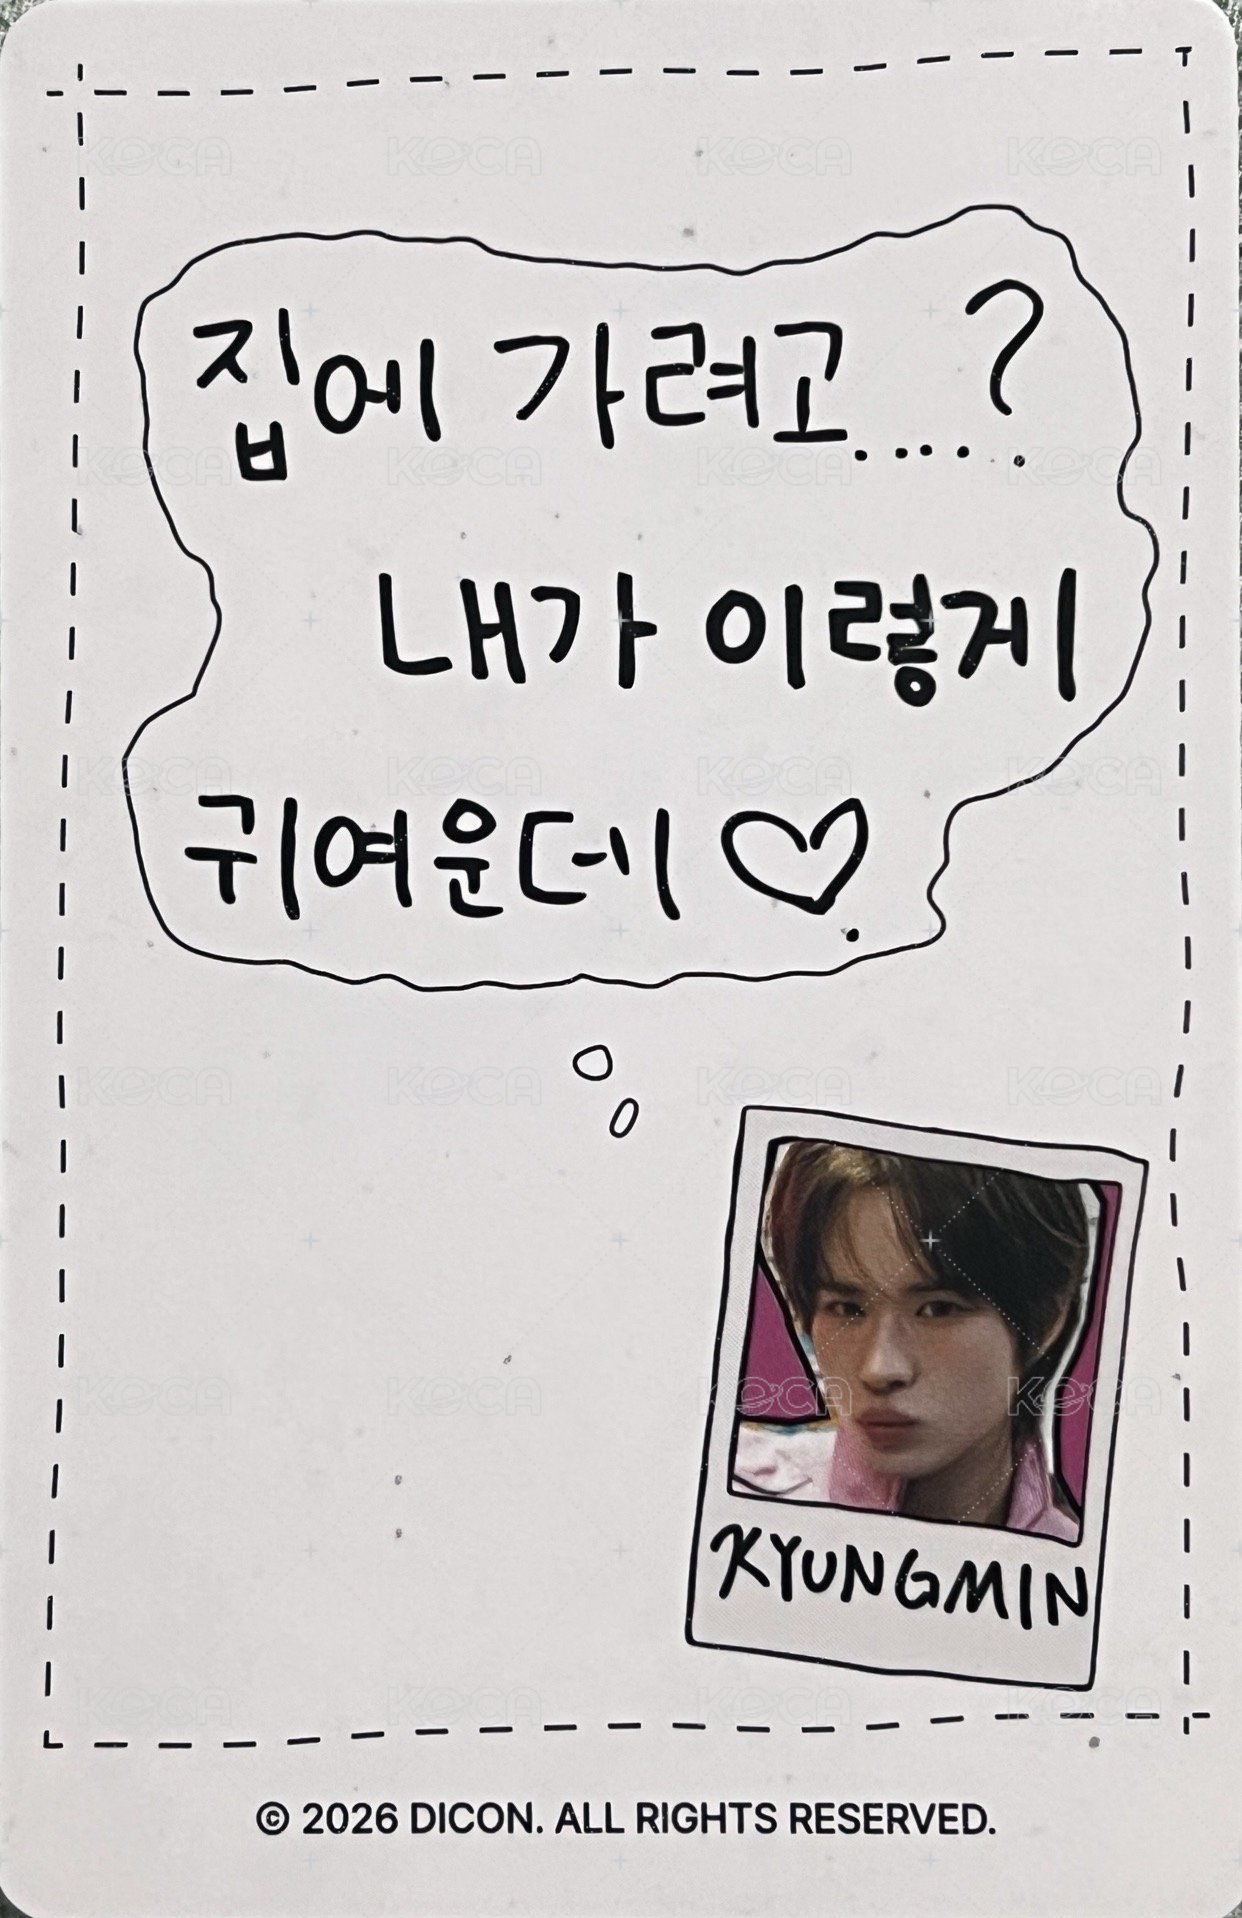 집에 가려고....?
내가 이렇게
귀여운데♡.
KYUNGMIN
© 2026 DICON. ALL RIGHTS RESERVED.
KOCA